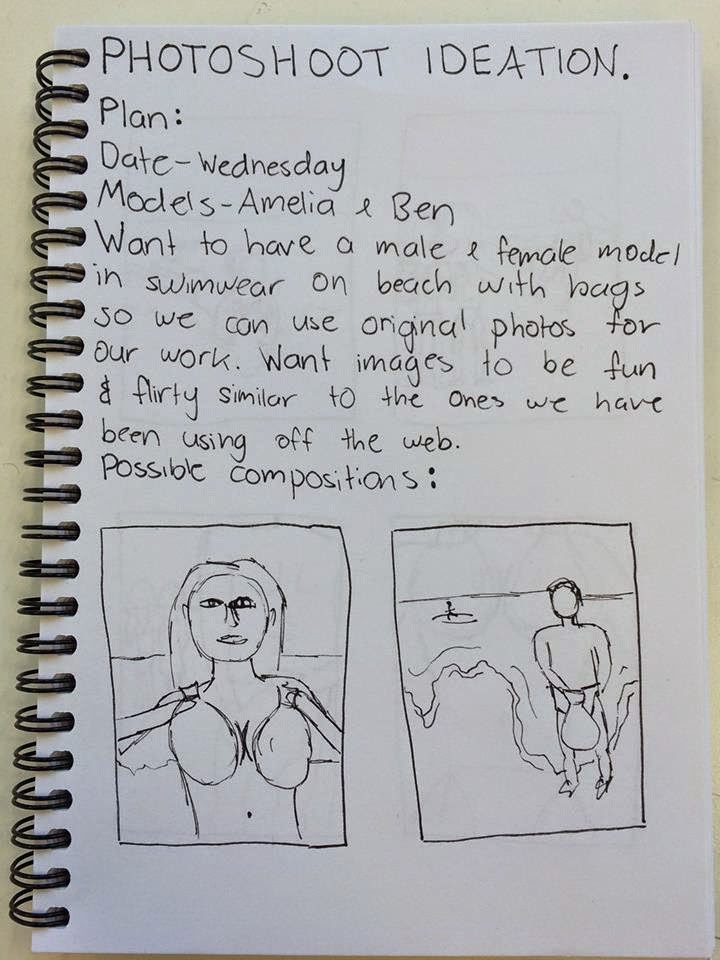 PHOTOSHOOT IDEATION.
Plan:
Date - Wednesday
Models - Amelia & Ben
Want to have a male & female model
in swimwear on beach with bags
so we can use original photos for
our work. Want images to be fun
& flirty similar to the ones we have
been using off the web.
Possible compositions: